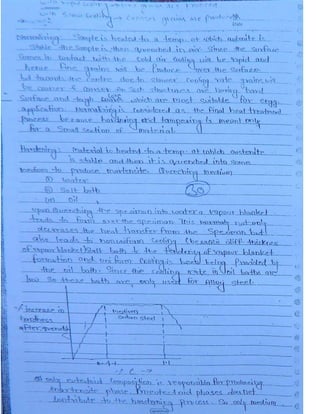 with rapid
with slow cooling → coarser grains are produced
Normalising: Sample is heated to a temp. at which austenite is
stable the sample is then quenched in air. Since the surface
comes in contact with the cold air cooling will be rapid and
hence fine grains will be produce over the surface
but towards the centre due to slower cooling rate grains will
be coarser & coarser. Such structures are having hard
surface and tough which are most suitable for engg.
application. Normalising is considered as the final heat treatment
process because hardening and tempering is meant only
for a small section of material.
Hardening: Material is heated to a temp. at which austenite
is stable and then it is quenched into some
medium to produce martensite. Quenching medium
(i) water
(ii) Salt bath
(iii) Oil
upon quenching the specimen into water a vapour blanket
tends to form over the specimen this normally not only
decreases the heat transfer from the specimen but
also leads to nonuniform cooling because diff. thickness
of vapour blanket bath & the tendency of vapour blanket
formation and uniform cooling is being provided by
the oil baths. Since the cooling rate in oil baths are
low so these bath are only used for alloy steel.
Increase in
hardness
after quench
medium
carbon steel
only eutectoid composition is responsible for producing
martensite phase. Proeutectoid phases does not
contribute to the hardening process. So only medium